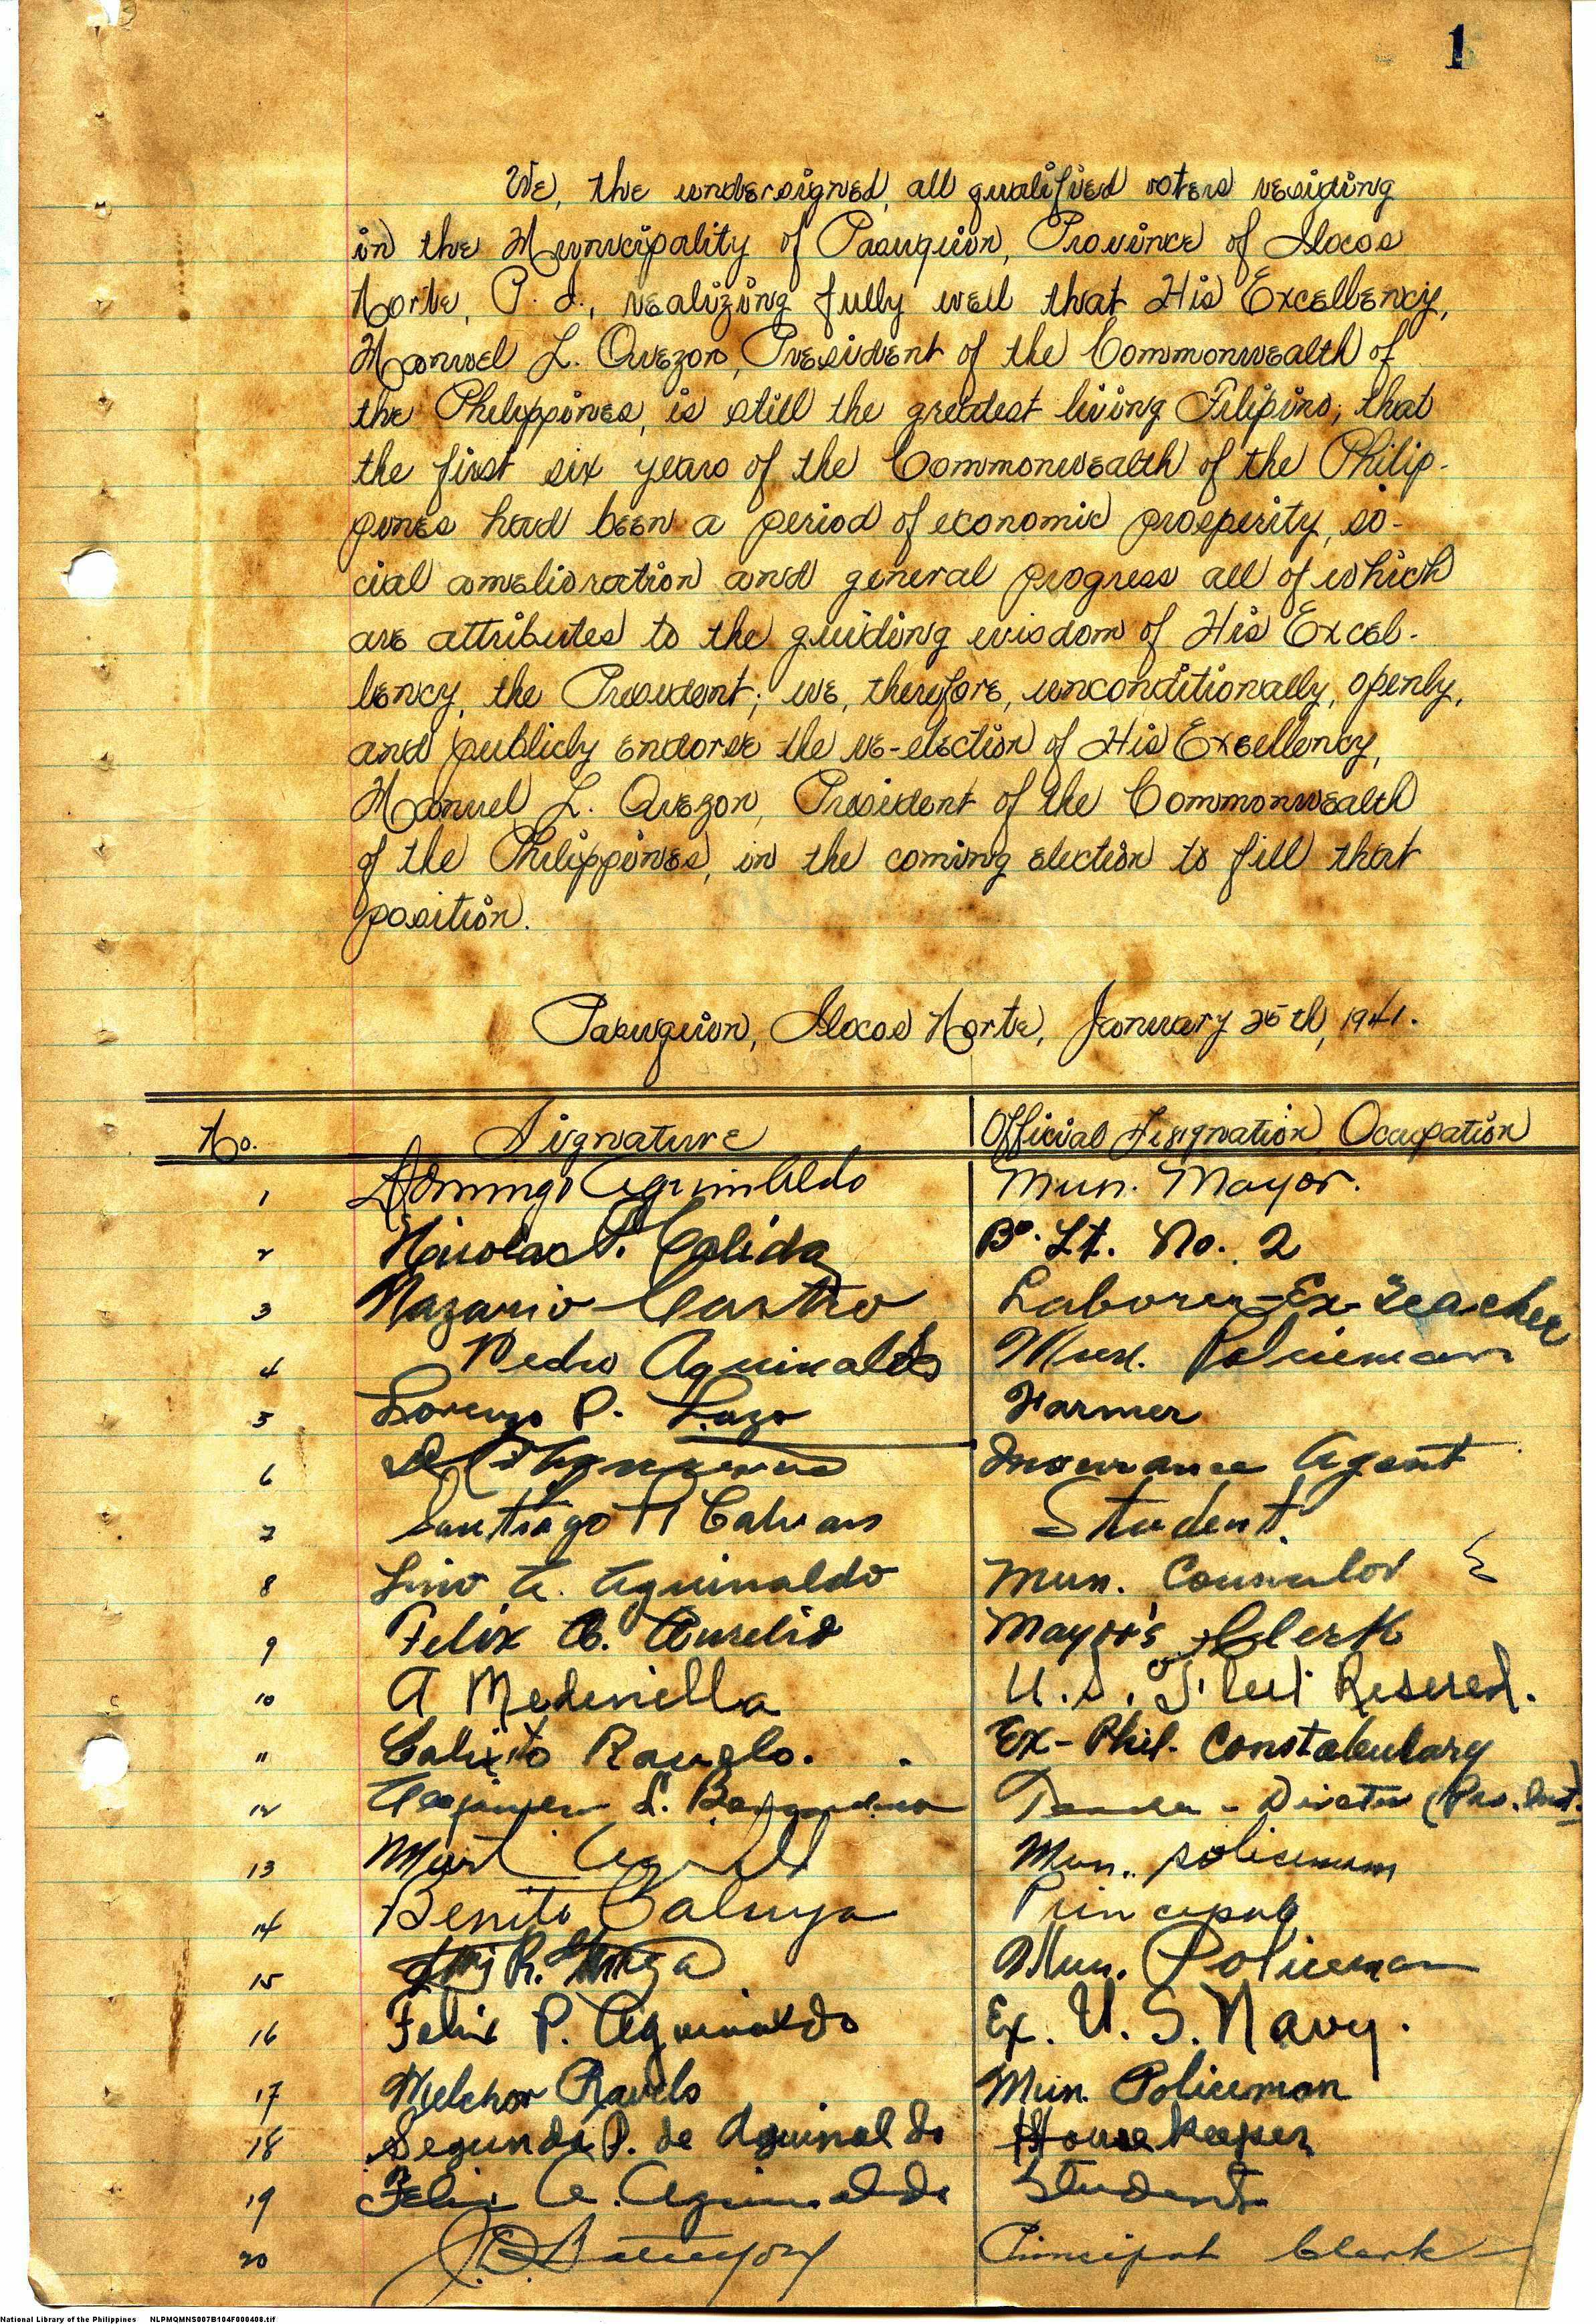 1
We, the undersigned, all qualified voters residing
in the Municipality of Pasuquin, Province of Ilocos
Norte, P. I., realizing fully well that His Excellency,
Manuel L. Quezon, President of the Commonwealth of
the Philippines, is still the greatest living Filipino; that
the first six years of the Commonwealth of the Philip-
pines had been a period of economic prosperity, so-
cial amelioration and general progress all of which
are attributes to the guiding wisdom of His Excel-
lency, the President; we, therefore, unconditionally, openly,
and publicly endorse the re-election of His Excellency,
Manuel L. Quezon, President of the Commonwealth
of the Philippines, in the coming election to fill that
position.
Pasuquin, Ilocos Norte, January 25th, 1941.
No. Signature Official Designation, Occupation
1 Domingo Aguinaldo Mun. Mayor.
2 Nicolas P. Calida Bo. Lt. No. 2
3 Nazario Castro Laborer-Ex-Teacher
4 Pedro Aguinaldo Mun. Policeman
5 Lorenzo P. Lazo Farmer
6 Insurance Agent
7 Santiago Student.
8 Lino A. Aguinaldo Mun. Councilor
9 Felix A. Aurelio Mayor's Clerk
10 A Medinilla U.S. Fleet Resered.
11 Calixto Ravelo. Ex-Phil. Constabulary
12 L. - Director
13 Mun. Policeman
14 Benito Baluya Principal
15 R. Mun. Policeman
16 Felix P. Aguinaldo Ex. U. S. Navy.
17 Melchor Ravelo Mun. Policeman
18 Segunda P. de Aguinaldo House Keeper
19 Felix A. Aguinaldo Student
20 Principal Clerk
National Library of the Philippines NLPMQMNS007B104F000408.tif